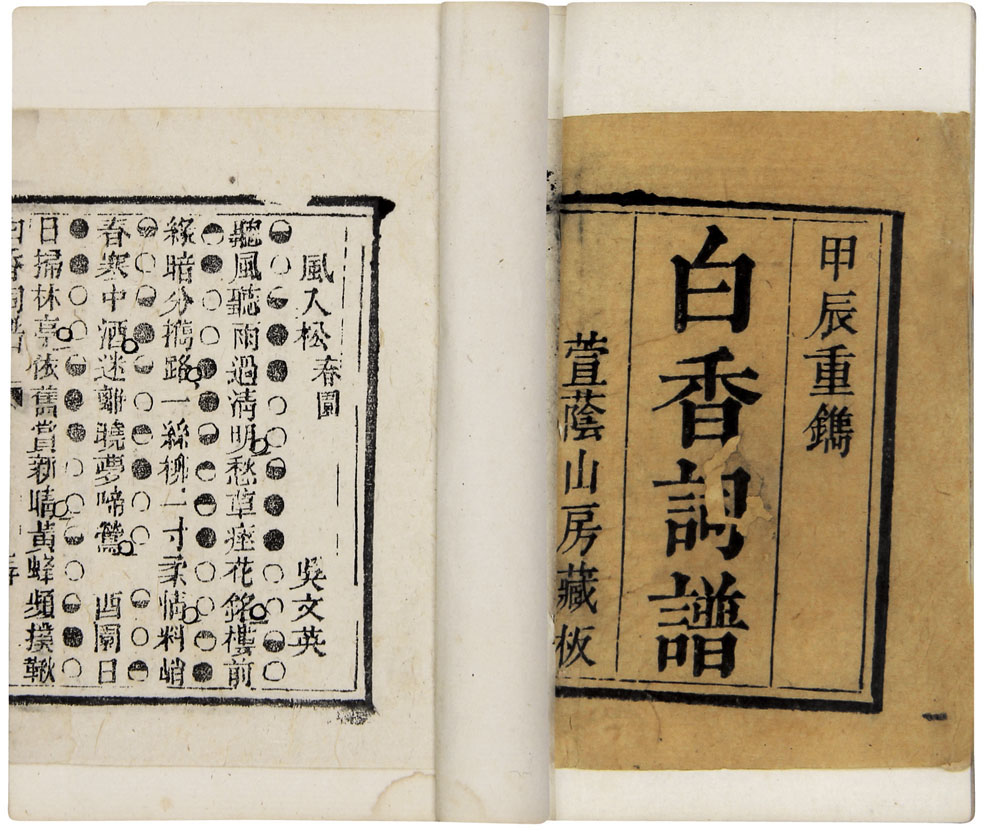 甲辰重鐫
白香詞譜
萱蔭山房藏板
風入松 春園 吳文英
聽風聽雨過清明愁草瘞花銘樓前
綠暗分擕路一絲柳一寸柔情料峭
春寒中酒迷離曉夢啼鶯 西園日
日掃林亭依舊賞新晴黃蜂頻撲鞦